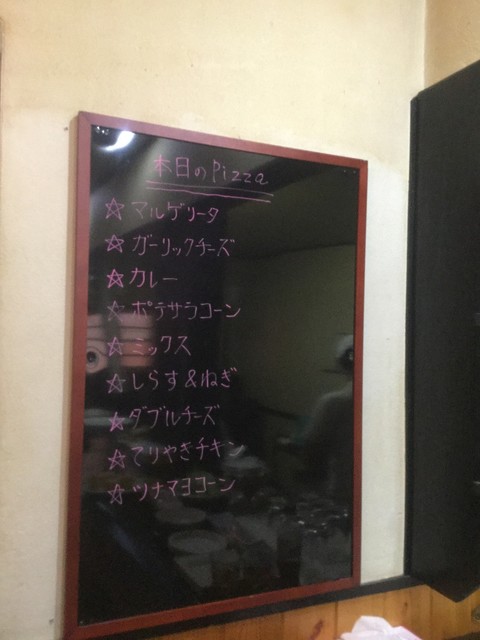 本日のPizza
☆マルゲリータ
☆ガーリックチーズ
☆カレー
☆ポテサラコーン
☆ミックス
☆しらす&ねぎ
☆ダブルチーズ
☆てりやきチキン
☆ツナマヨコーン